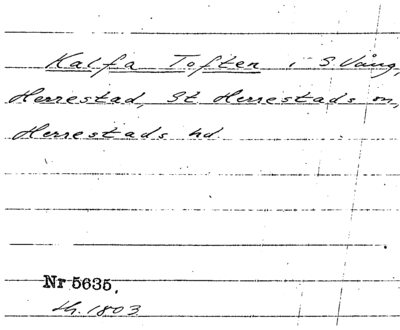 Kalfa Toften i S Vång,
Herrestad, St Herrestads sn,
Herrestads hd.
Nr 5635.
th. 1803